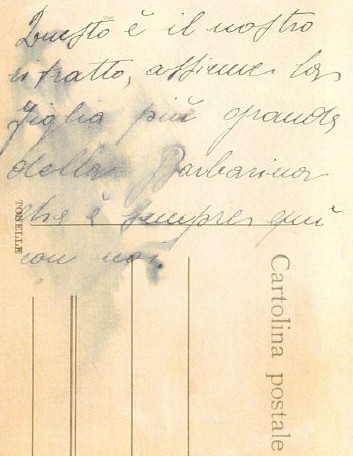 Questo è il nostro
ritratto, assieme la
figlia più grande
della Barbarina
che è sempre qui
con noi.
TOSELLE
Cartolina postale